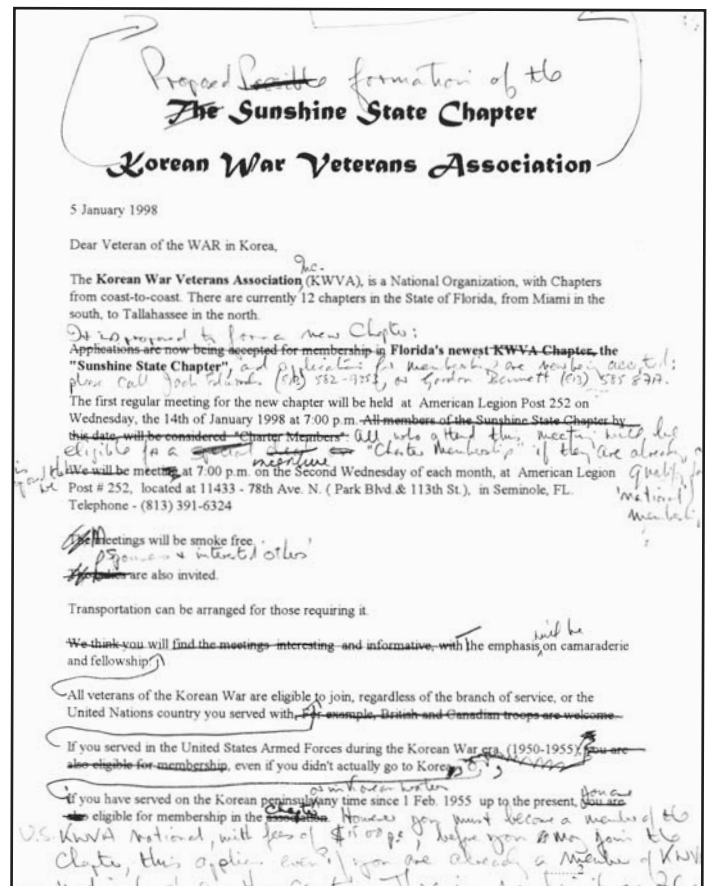 Proposed Possible formation of the
The Sunshine State Chapter
Korean War Veterans Association
5 January 1998
Dear Veteran of the WAR in Korea,
Inc.
The Korean War Veterans Association (KWVA), is a National Organization, with Chapters
from coast-to-coast. There are currently 12 chapters in the State of Florida, from Miami in the
south, to Tallahassee in the north.
It is proposed to form a new Chapter:
Applications are now being accepted for membership in Florida's newest KWVA Chapter, the
"Sunshine State Chapter", and applications for membership are now being accepted:
please call Jack Edwards (813) 582-9353, or Gordon Bennett (813) 585
The first regular meeting for the new chapter will be held at American Legion Post 252 on
Wednesday, the 14th of January 1998 at 7:00 p.m. All members of the Sunshine State Chapter by
this date, will be considered "Charter Members". All who attend this meeting will be
eligible for a special "Charter Membership" if they are already
We will be meeting at 7:00 p.m. on the Second Wednesday of each month, at American Legion
Post # 252, located at 11433 - 78th Ave. N. ( Park Blvd.& 113th St.), in Seminole, FL.
Telephone - (813) 391-6324
'national'
membership
The meetings will be smoke free.
Spouses & interested 'others'
are also invited.
Transportation can be arranged for those requiring it.
We think you will find the meetings interesting and informative, with the emphasis will be on camaraderie
and fellowship.
All veterans of the Korean War are eligible to join, regardless of the branch of service, or the
United Nations country you served with, For example, British and Canadian troops are welcome.
If you served in the United States Armed Forces during the Korean War era, (1950-1955), you are
also eligible for membership, even if you didn't actually go to Korea,
or in Korean waters
If you have served on the Korean peninsula any time since 1 Feb. 1955 up to the present, you are
also eligible for membership in the association. Chapter However you must become a member of the
U.S. KWVA National, with fees of before you may join the
Chapter, this applies even if you are already a member of KWVA